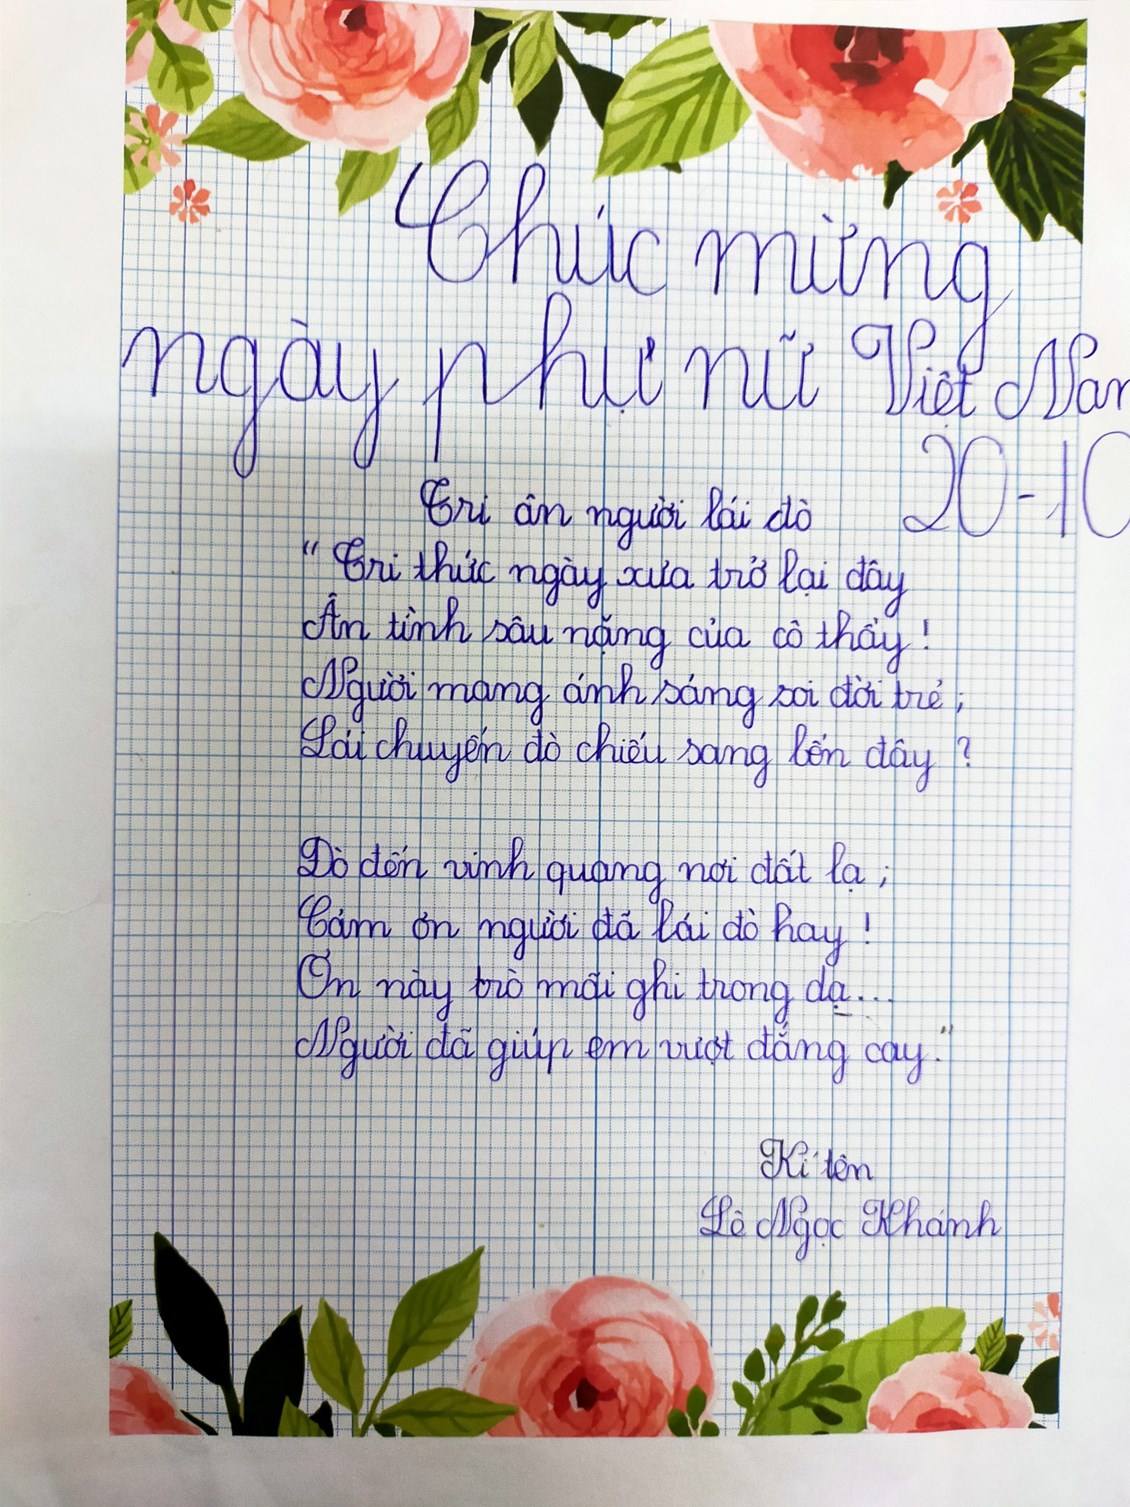 Chúc mừng
ngày phụ nữ Việt Nam
20-10
Tri ân người lái đò
“Tri thức ngày xưa trở lại đây
Ân tình sâu nặng của cô thầy!
Người mang ánh sáng soi đời trẻ;
Lái chuyến đò chiều sang bến đây?
Đò đến vinh quang nơi đất lạ;
Cám ơn người đã lái đò hay!
Ơn này trò mãi ghi trong dạ...
Người đã giúp em vượt đắng cay.”
Kí tên
Lê Ngọc Khánh